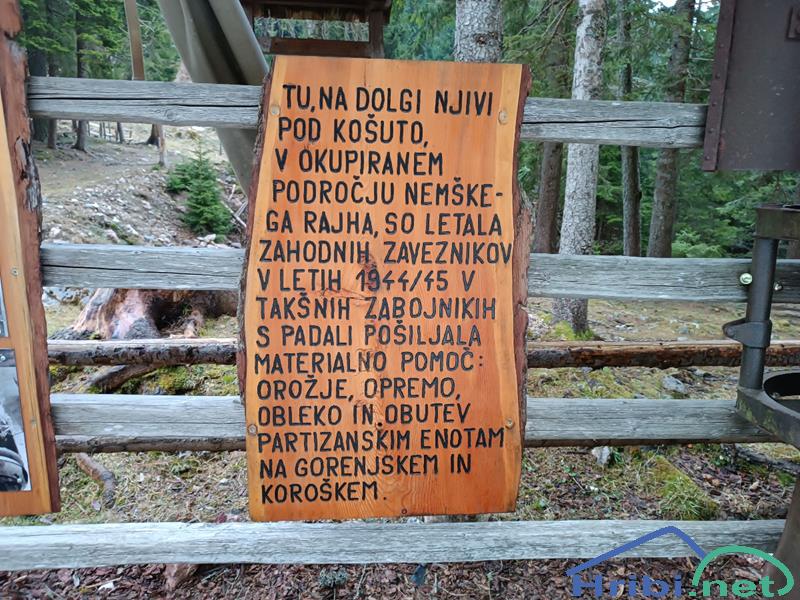 TU, NA DOLGI NJIVI
POD KOŠUTO,
V OKUPIRANEM
PODROČJU NEMŠKE-
GA RAJHA, SO LETALA
ZAHODNIH ZAVEZNIKOV
V LETIH 1944/45 V
TAKŠNIH ZABOJNIKIH
S PADALI POŠILJALA
MATERIALNO POMOČ:
OROŽJE, OPREMO,
OBLEKO IN OBUTEV
PARTIZANSKIM ENOTAM
NA GORENJSKEM IN
KOROŠKEM.
Hribi.net